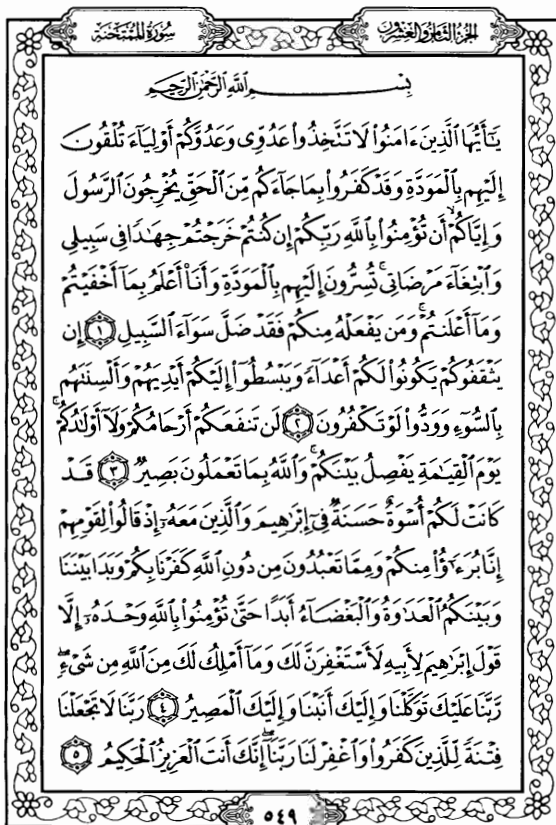 سُورَةُ المُمْتَحنَة
الجُزءُ الثَّامِنُ وَالعِشرُونَ
بِسْمِ اللَّهِ الرَّحْمَٰنِ الرَّحِيمِ
يَٰٓأَيُّهَا الَّذِينَ ءَامَنُوا۟ لَا تَتَّخِذُوا۟ عَدُوِّى وَعَدُوَّكُمْ أَوْلِيَآءَ تُلْقُونَ
إِلَيْهِم بِالْمَوَدَّةِ وَقَدْ كَفَرُوا۟ بِمَا جَآءَكُم مِّنَ الْحَقِّ يُخْرِجُونَ الرَّسُولَ
وَإِيَّاكُمْ ۙ أَن تُؤْمِنُوا۟ بِاللَّهِ رَبِّكُمْ إِن كُنتُمْ خَرَجْتُمْ جِهَٰدًا فِى سَبِيلِى
وَابْتِغَآءَ مَرْضَاتِى ۚ تُسِرُّونَ إِلَيْهِم بِالْمَوَدَّةِ وَأَنَا۠ أَعْلَمُ بِمَآ أَخْفَيْتُمْ
وَمَآ أَعْلَنتُمْ ۚ وَمَن يَفْعَلْهُ مِنكُمْ فَقَدْ ضَلَّ سَوَآءَ السَّبِيلِ ١ إِن
يَثْقَفُوكُمْ يَكُونُوا۟ لَكُمْ أَعْدَآءً وَيَبْسُطُوٓا۟ إِلَيْكُمْ أَيْدِيَهُمْ وَأَلْسِنَتَهُم
بِالسُّوٓءِ وَوَدُّوا۟ لَوْ تَكْفُرُونَ ٢ لَن تَنفَعَكُمْ أَرْحَامُكُمْ وَلَآ أَوْلَٰدُكُمْ ۚ
يَوْمَ الْقِيَٰمَةِ يَفْصِلُ بَيْنَكُمْ ۚ وَاللَّهُ بِمَا تَعْمَلُونَ بَصِيرٌ ٣ قَدْ
كَانَتْ لَكُمْ أُسْوَةٌ حَسَنَةٌ فِىٓ إِبْرَٰهِيمَ وَالَّذِينَ مَعَهُۥٓ إِذْ قَالُوا۟ لِقَوْمِهِمْ
إِنَّا بُرَءَٰٓؤُا۟ مِنكُمْ وَمِمَّا تَعْبُدُونَ مِن دُونِ اللَّهِ كَفَرْنَا بِكُمْ وَبَدَا بَيْنَنَا
وَبَيْنَكُمُ الْعَدَٰوَةُ وَالْبَغْضَآءُ أَبَدًا حَتَّىٰ تُؤْمِنُوا۟ بِاللَّهِ وَحْدَهُۥٓ إِلَّا
قَوْلَ إِبْرَٰهِيمَ لِأَبِيهِ لَأَسْتَغْفِرَنَّ لَكَ وَمَآ أَمْلِكُ لَكَ مِنَ اللَّهِ مِن شَىْءٍ ۖ
رَّبَّنَا عَلَيْكَ تَوَكَّلْنَا وَإِلَيْكَ أَنَبْنَا وَإِلَيْكَ الْمَصِيرُ ٤ رَبَّنَا لَا تَجْعَلْنَا
فِتْنَةً لِّلَّذِينَ كَفَرُوا۟ وَاغْفِرْ لَنَا رَبَّنَآ ۖ إِنَّكَ أَنتَ الْعَزِيزُ الْحَكِيمُ ٥
٥٤٩